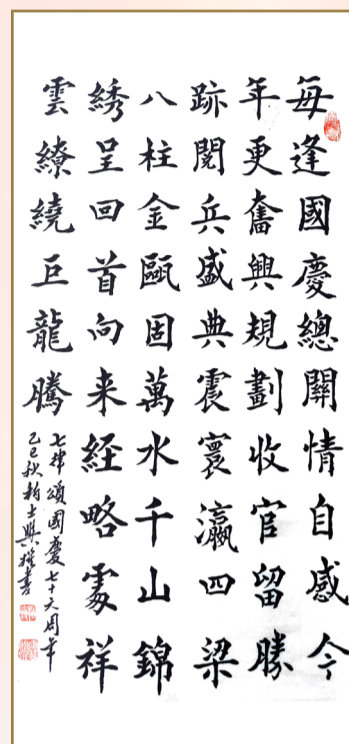 每逢國慶總關情自感今
年更奮興規劃收官留勝
跡閱兵盛典震寰瀛四梁
八柱金甌固萬水千山錦
綉呈回首向来経略處祥
雲繚繞巨龍騰
七律頌國慶七十六周年
乙巳秋士書